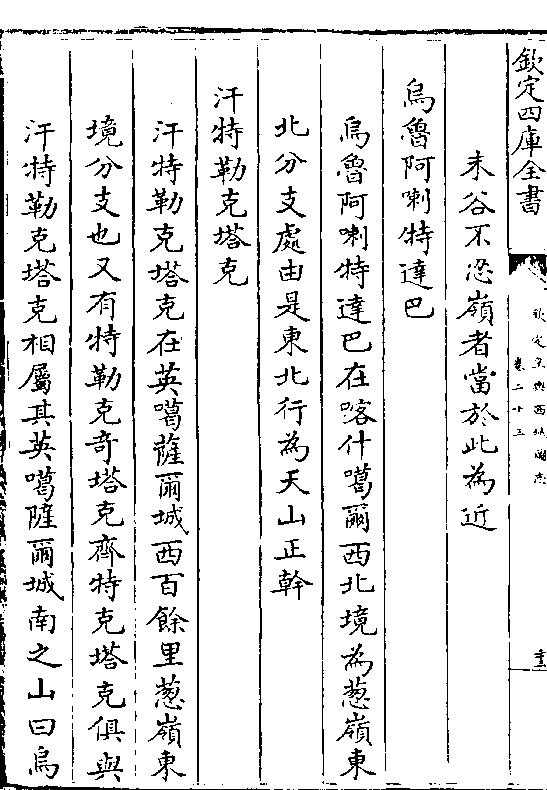 欽定四庫全書
欽定皇輿西域圖志
卷二十三
末谷不忍嶺者當於此為近
烏魯阿喇特達巴
烏魯阿喇特達巴在喀什噶爾西北境為葱嶺東
北分支處由是東北行為天山正幹
汗特勒克塔克
汗特勒克塔克在英噶薩爾城西百餘里葱嶺東
境分支也又有特勒克奇塔克齊特克塔克俱與
汗特勒克塔克相屬其英噶薩爾城南之山曰烏